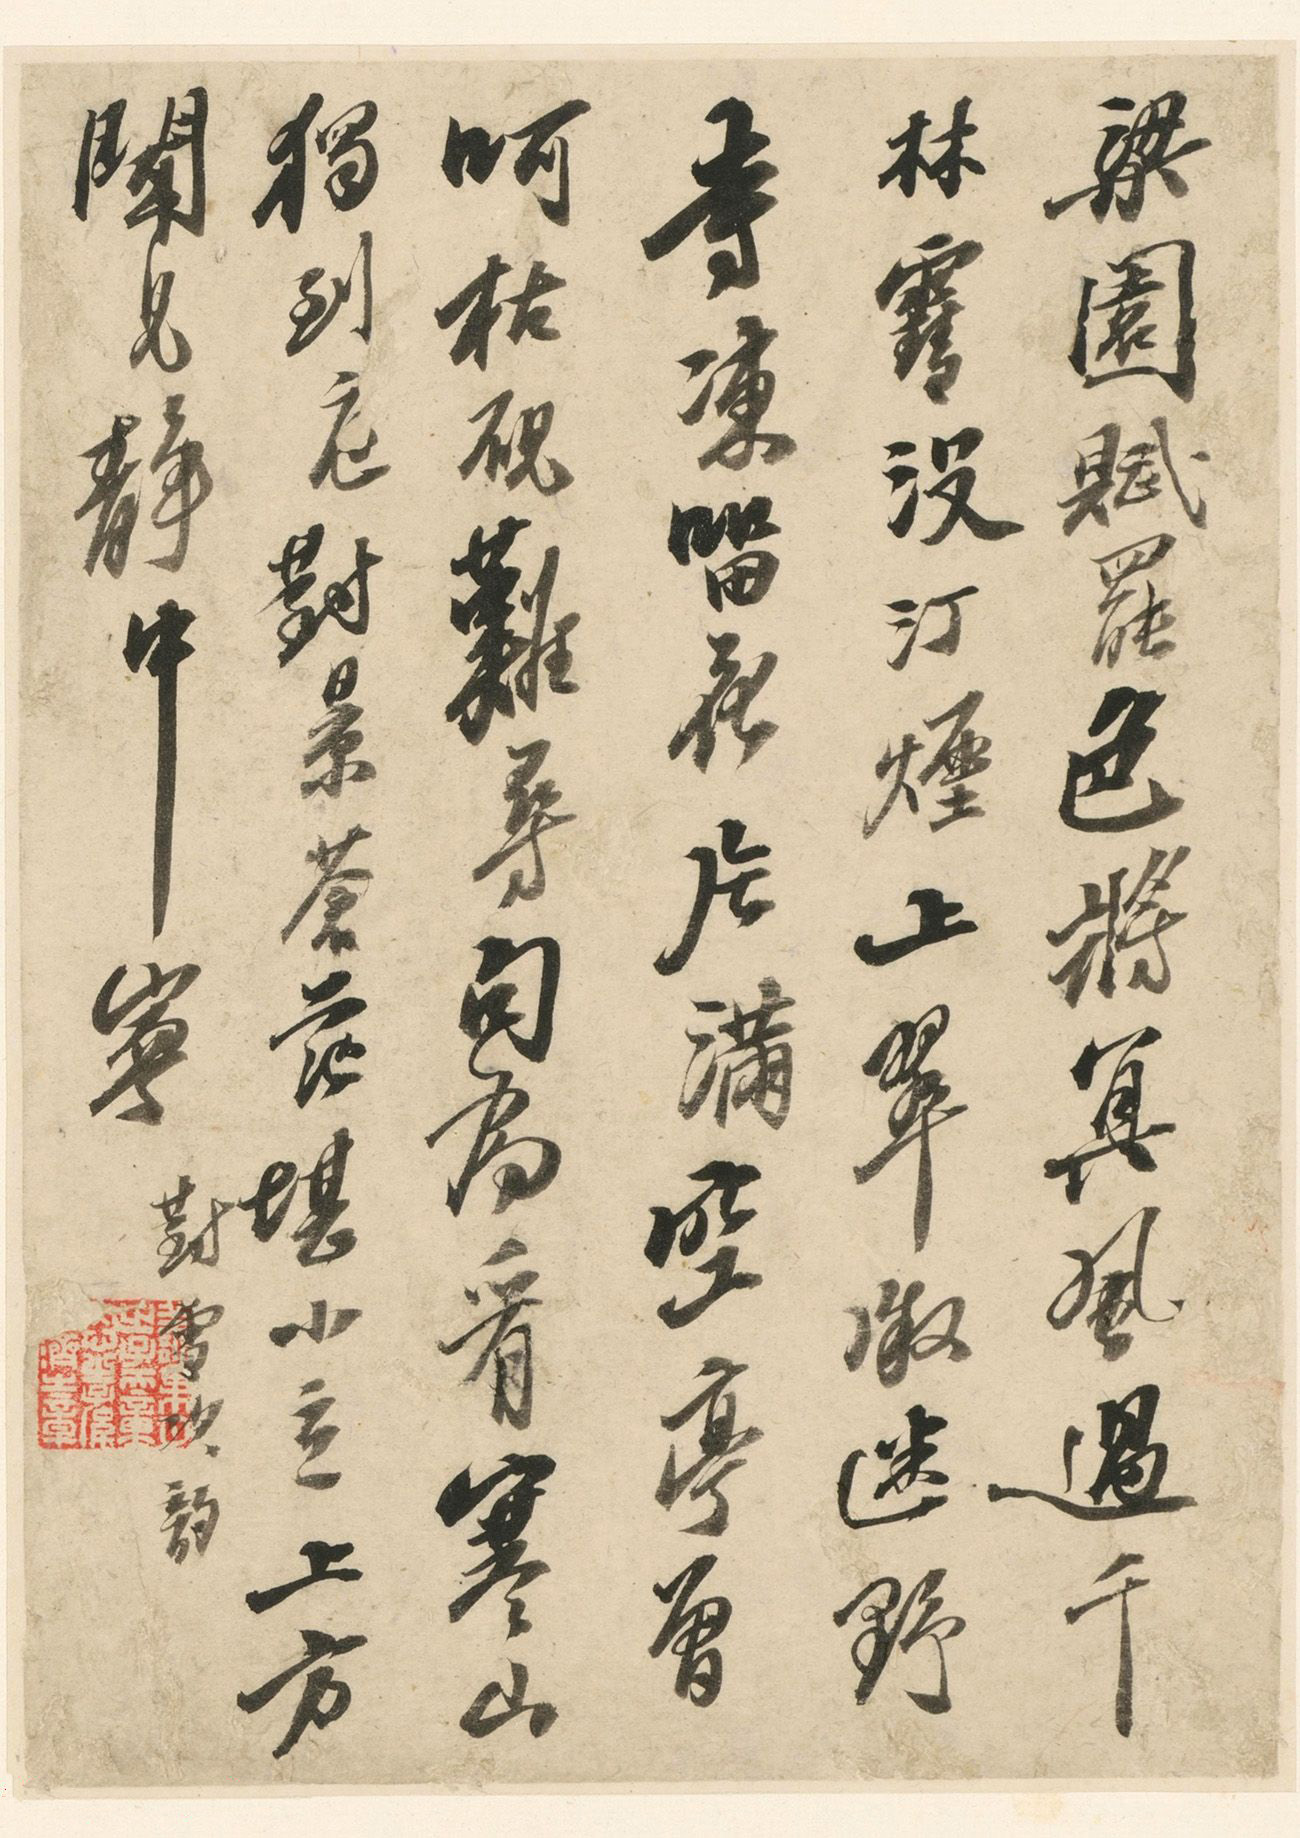 梁園賦罷色將冥風過千
林霽沒汀煙上翠微迷野
寺凍留花片滿空亭曾
呵枯硯難尋句為看寒山
獨到庭對景蒼茫堪小立上方
聞見靜中寧
對雪次韻